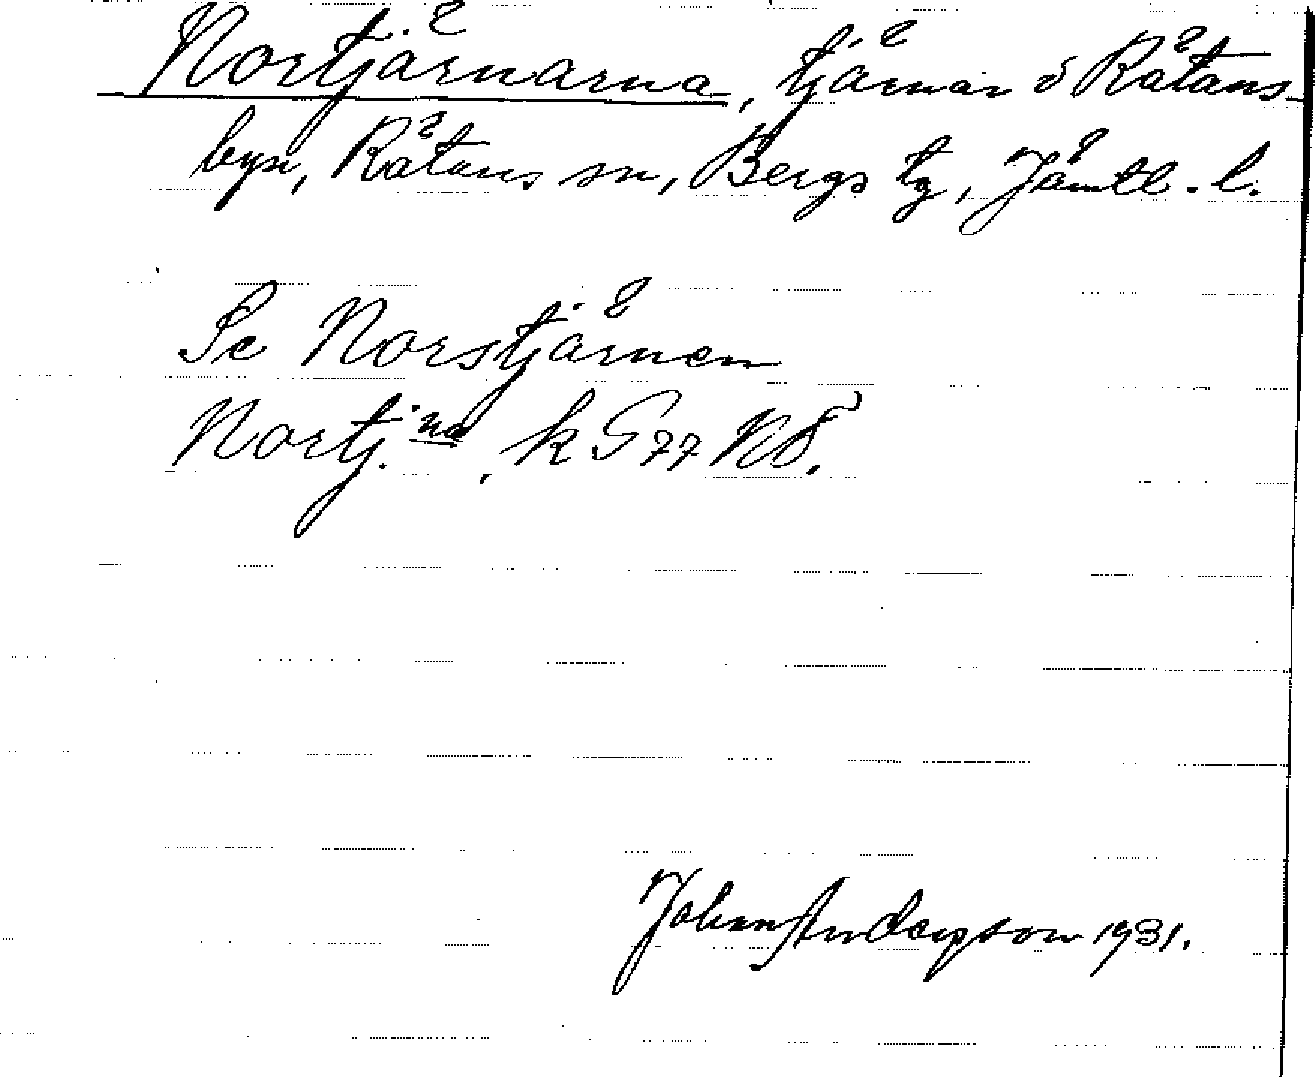 Nortjärnarna, tjärnar å Råtans
byn, Råtans sn, Bergs tg, Jämtl. l.
Se Norstjärnen
Nortj. na, k G 77 NÖ.
Johan Anderson 1931.